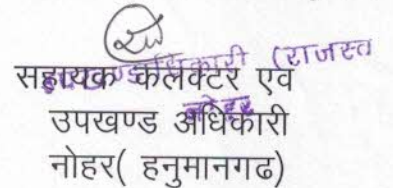 उपखण्ड अधिकारी (राजस्त
सहायक कलेक्टर एवं
नोहर
उपखण्ड अधिकारी
नोहर( हनुमानगढ)